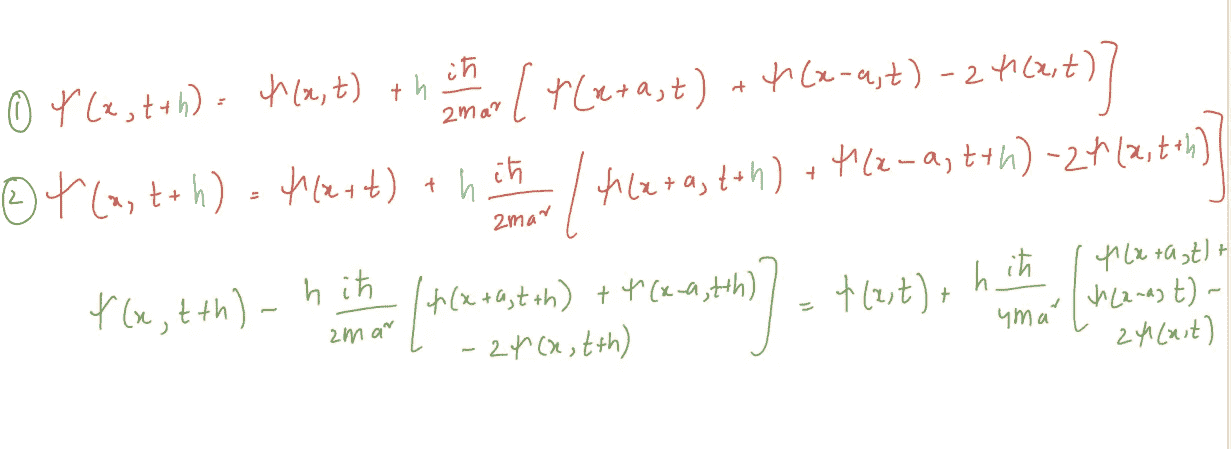 ① ψ(x, t+h) = ψ(x,t) + h iħ/2ma² [ψ(x+a, t) + ψ(x-a,t) - 2ψ(x,t)]
② ψ(x, t+h) = ψ(x+t) + h iħ/2ma² [ψ(x+a, t+h) + ψ(x-a, t+h) - 2ψ(x,t+h)]
ψ(x, t+h) - h iħ/2ma² [ψ(x+a,t+h) + ψ(x-a,t+h) - 2ψ(x,t+h)] = ψ(x,t) + h iħ/4ma² [ψ(x+a,t) + ψ(x-a,t) - 2ψ(x,t)]